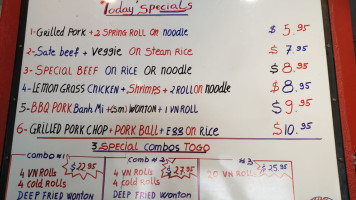 Today's specials
1-Grilled Pork + 2 Spring Roll on noodle $5.95
2-Sate beef + Veggie on Steam Rice $7.95
3-Special Beef on Rice or noodle $8.95
4-Lemon grass Chicken + Shrimps + 2 Roll on noodle $8.95
5-BBQ Pork Banh Mi + (sm) Wonton + 1 VN Roll $9.95
6-Grilled Pork Chop + Pork Ball + Egg on Rice $10.95
3 Special Combos TOGO
Combo #1 $22.95 Comb # 2 $27.95 # 3 $25.95
4 VN Rolls 4 VN Rolls 20 VN Rolls
4 cold Rolls 4 Cold Rolls
Deep Fried Wonton Deep Fried Wonton